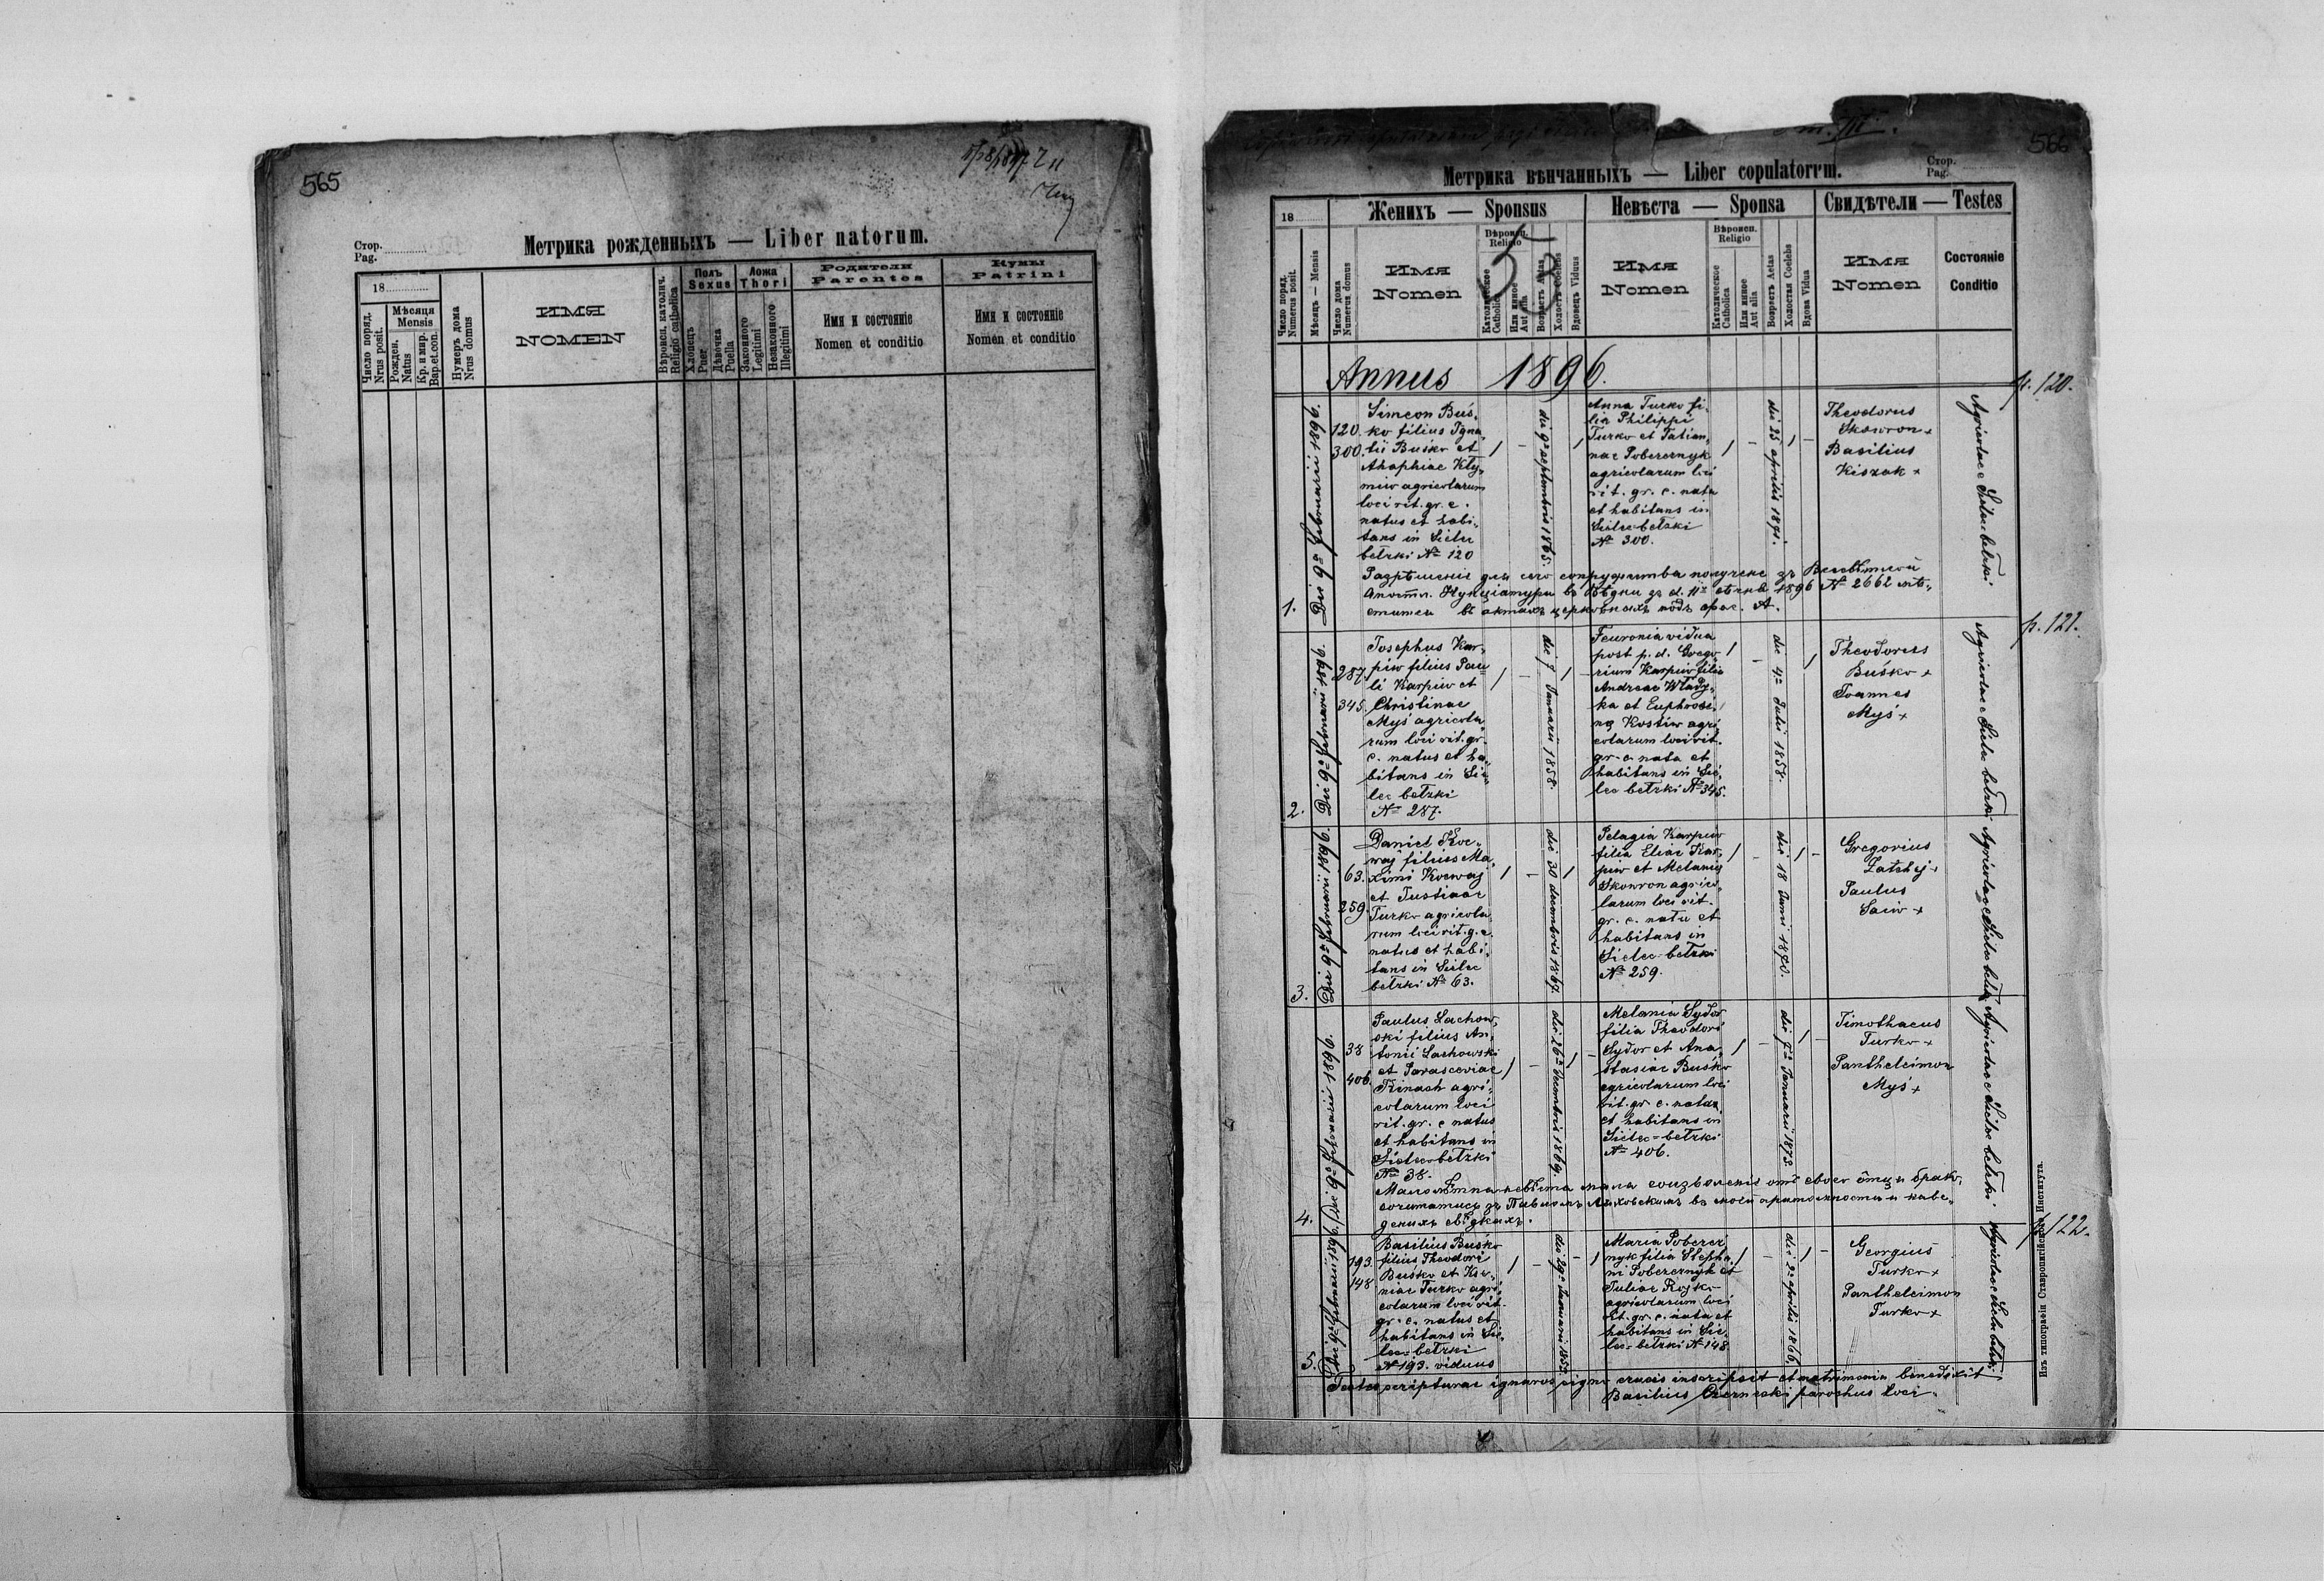 565
Стор.
Pag.
Метрика рожденныхъ — Liber natorum.
18
Число поряд.
Nrus posit.
Мѣсяця
Mensis
Рожден.
Natus
Кр. и мир.
Bap. et con.
Нумеръ дома
Nrus domus
ИМЯ
NOMEN
Вѣроисп. католич.
Religio catholica
Полъ
Sexus
Хлопецъ
Puer
Дѣвочка
Puella
Ложа
Thori
Законного
Legitimi
Незаконного
Illegitimi
Родители
Parentes
Имя и состояніе
Nomen et conditio
Кумы
Patrini
Имя и состояніе
Nomen et conditio
566
Метрика вѣнчанныхъ — Liber copulatorum.
Стор.
Pag.
18
Женихъ — Sponsus
Невѣста — Sponsa
Свидѣтели — Testes
Число поряд.
Numerus posit.
Мѣсяць — Mensis
Число дома
Numerus domus
Имя
Nomen
Вѣроисп.
Religio
Католическое
Catholica
Или инное
Aut alia
Возрастъ Aetas
Холостъ Coelebs
Вдовецъ Viduus
Имя
Nomen
Вѣроисп.
Religio
Католическое
Catholica
Или инное
Aut alia
Возрастъ Aetas
Холостая Coelebs
Вдова Vidua
Имя
Nomen
Состояніе
Conditio
Annus 1896.
p. 120.
1.
Die 9a Februarii 1896.
120.
300.
Simeon Buś-
ko filius Igna-
tii Buśko et
Ahaphiae Kly-
miw agricolarum
loci rit. gr. c.
natus et habi-
tans in Sielec
bełzki No 120
die 9a septembris 1865.
Anna Turko fi-
lia Philippi
Turko et Tatian-
nae Pobereznyk
agricolarum loci
rit. gr. c. nata
et habitans in
Sielec bełzki
No 300.
die 25 aprilis 1871.
Theodorus
Skowron +
Basilius
Kiszak +
Agricolae e Sielec bełzki
No 2662
p. 121.
2.
Die 9a Februarii 1896.
287.
345.
Josephus Kar-
piw filius Pau-
li Karpiw et
Christinae
Myś agricola-
rum loci rit. gr.
c. natus et ha-
bitans in Sie-
lec bełzki
No 287.
die 7 Januarii 1858.
Feuronia vidua
post p. d. Grego-
rium Karpiw filia
Andreae Włady-
ka et Euphrosi-
nae Kostiw agri-
colarum loci rit.
gr. c. nata et
habitans in Sie-
lec bełzki No 345.
die 4a Julii 1858.
Theodorus
Buśko +
Joannes
Myś +
Agricolae e Sielec bełzki
3.
Die 9a Februarii 1896.
63.
259.
Daniel Koc-
waj filius Ma-
ximi Kocwaj
et Justinae
Turko agricola-
rum loci rit. g. c.
natus et habi-
tans in Sielec
bełzki No 63.
die 30 decembris 1867.
Pelagia Karpiw
filia Eliae Kar-
piw et Melaniae
Skowron agrico-
larum loci rit.
gr. c. nata et
habitans in
Sielec-bełzki
No 259.
die 18 Junii 1870.
Gregorius
Zatchij +
Paulus
Saiw +
Agricolae e Sielec bełzki
4.
Die 9a Februarii 1896.
38
406.
Paulus Lachow-
ski filius An-
tonii Lachowski
et Parasceviae
Kinach agri-
colarum loci
rit. gr. c natus
et habitans in
Sielec bełzki
No 38.
die 26a Decembris 1869.
Melania Sydor
filia Theodori
Sydor et Ana-
stasiae Buśko
agricolarum loci
rit. gr. c. nata
et habitans in
Sielec-bełzki
No 406.
die 7a Januarii 1873.
Timothaeus
Turko +
Pantheleimon
Myś +
Agricolae e Sielec bełzki
p. 122.
5.
Die 9a Februarii 1896.
193.
148
Basilius Buśko
filius Theodori
Buśko et Kse-
niae Turko agri-
colarum loci rit.
gr. c. natus et
habitans in Sie-
lec-bełzki
No 193. viduus
Maria Poberez-
nyk filia Stepha-
ni Pobereznyk et
Juliae Rojko
agricolarum loci
rit. gr. c. nata et
habitans in Sie-
lec-bełzki No 148
die 2a aprilis 1866.
Georgius
Turko +
Pantheleimon
Turko +
Agricolae e Sielec bełzki
Testes scripturae ignaros signo crucis inscripsit et matrimonia benedixit
Basilius Czernecki parochus loci.
Изъ типографіи Ставропигійского Института.